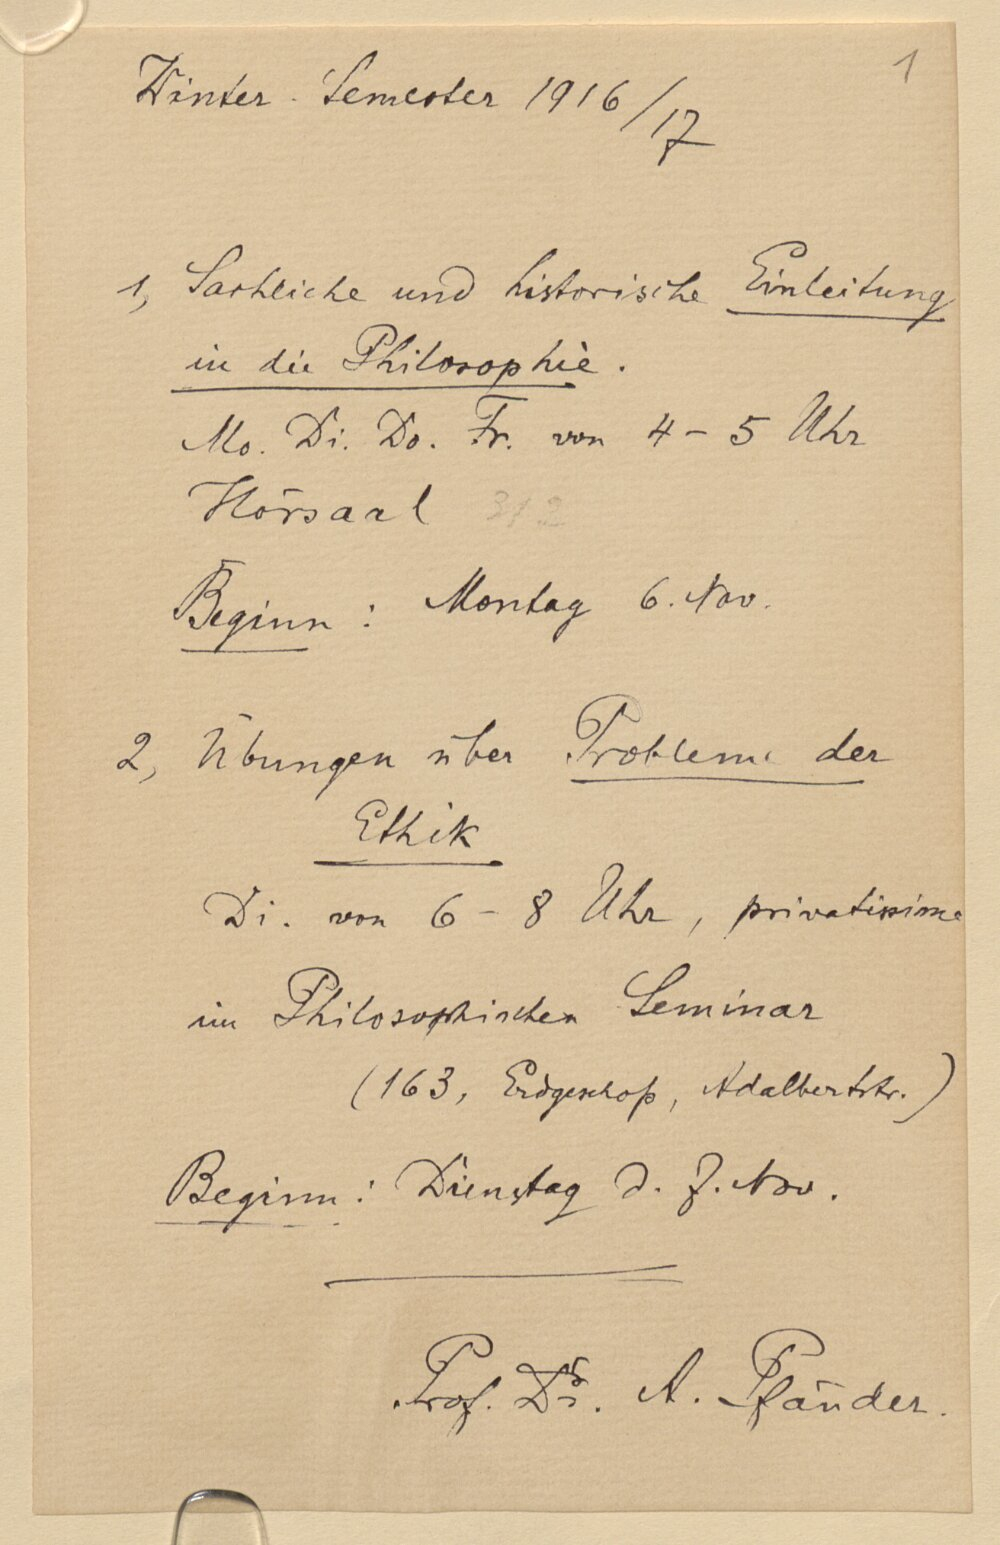 1
Winter-Semester 1916/17
1, Sachliche und historische Einleitung
in die Philosophie.
Mo. Di. Do. Fr. von 4 – 5 Uhr
Hörsaal 312
Beginn: Montag 6. Nov.
2, Übungen über Probleme der
Ethik
Di. von 6 – 8 Uhr, privatissime
im Philosophischen Seminar
(163, Erdgeschoß, Adalbertstr.)
Beginn: Dienstag d. 7. Nov.
Prof. Dr. A. Pfänder.